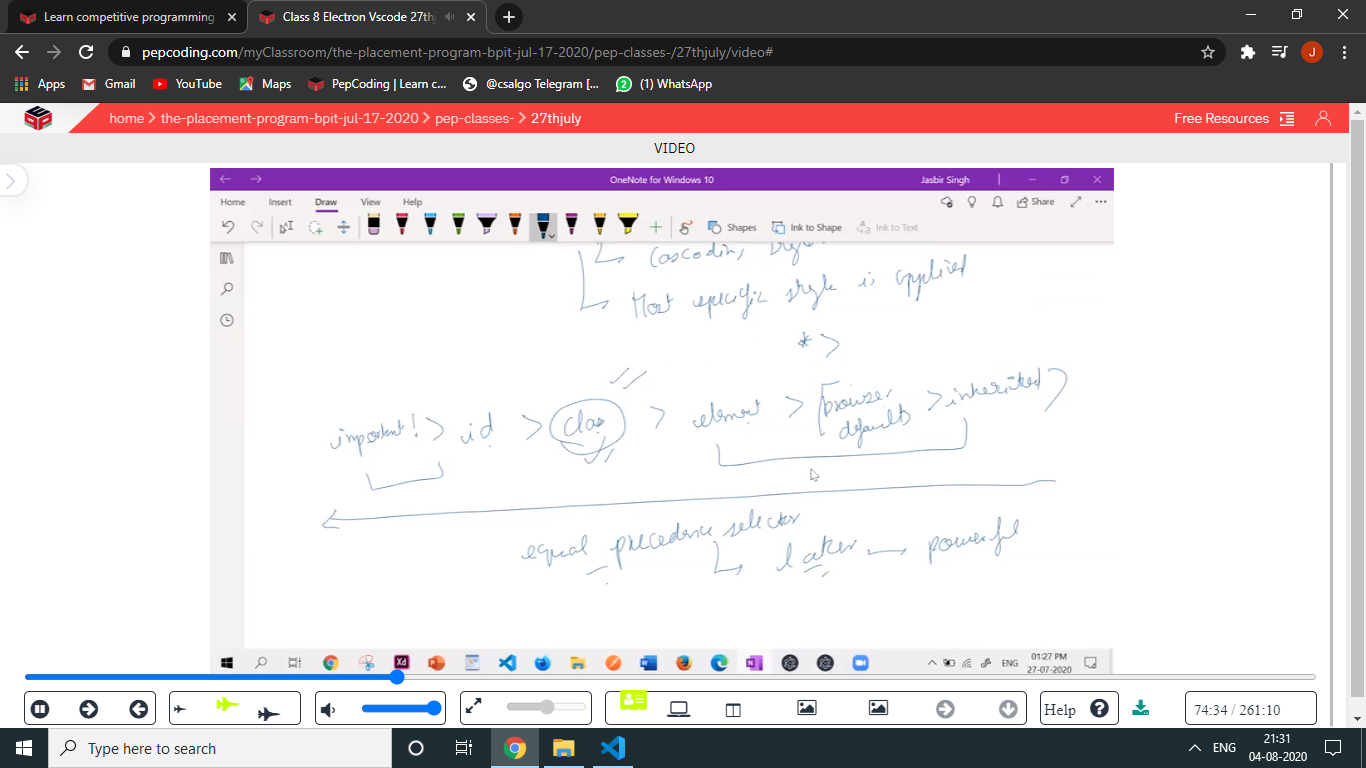 Learn competitive programming
Class 8 Electron Vscode 27th
pepcoding.com/myClassroom/the-placement-program-bpit-jul-17-2020/pep-classes-/27thjuly/video#
J
Apps Gmail YouTube Maps PepCoding | Learn c... @csalgo Telegram [... (1) WhatsApp
home > the-placement-program-bpit-jul-17-2020 > pep-classes- > 27thjuly
Free Resources
VIDEO
OneNote for Windows 10
Jasbir Singh
Home Insert Draw View Help
Share
Shapes Ink to Shape Ink to Text
Most specific style is applied
* >
important! > id > class > element > [browser > inherited)
defaults
equal precedence selector
later — powerful
Xd
ENG
01:27 PM
27-07-2020
Help ?
74:34 / 261:10
Type here to search
ENG
21:31
04-08-2020